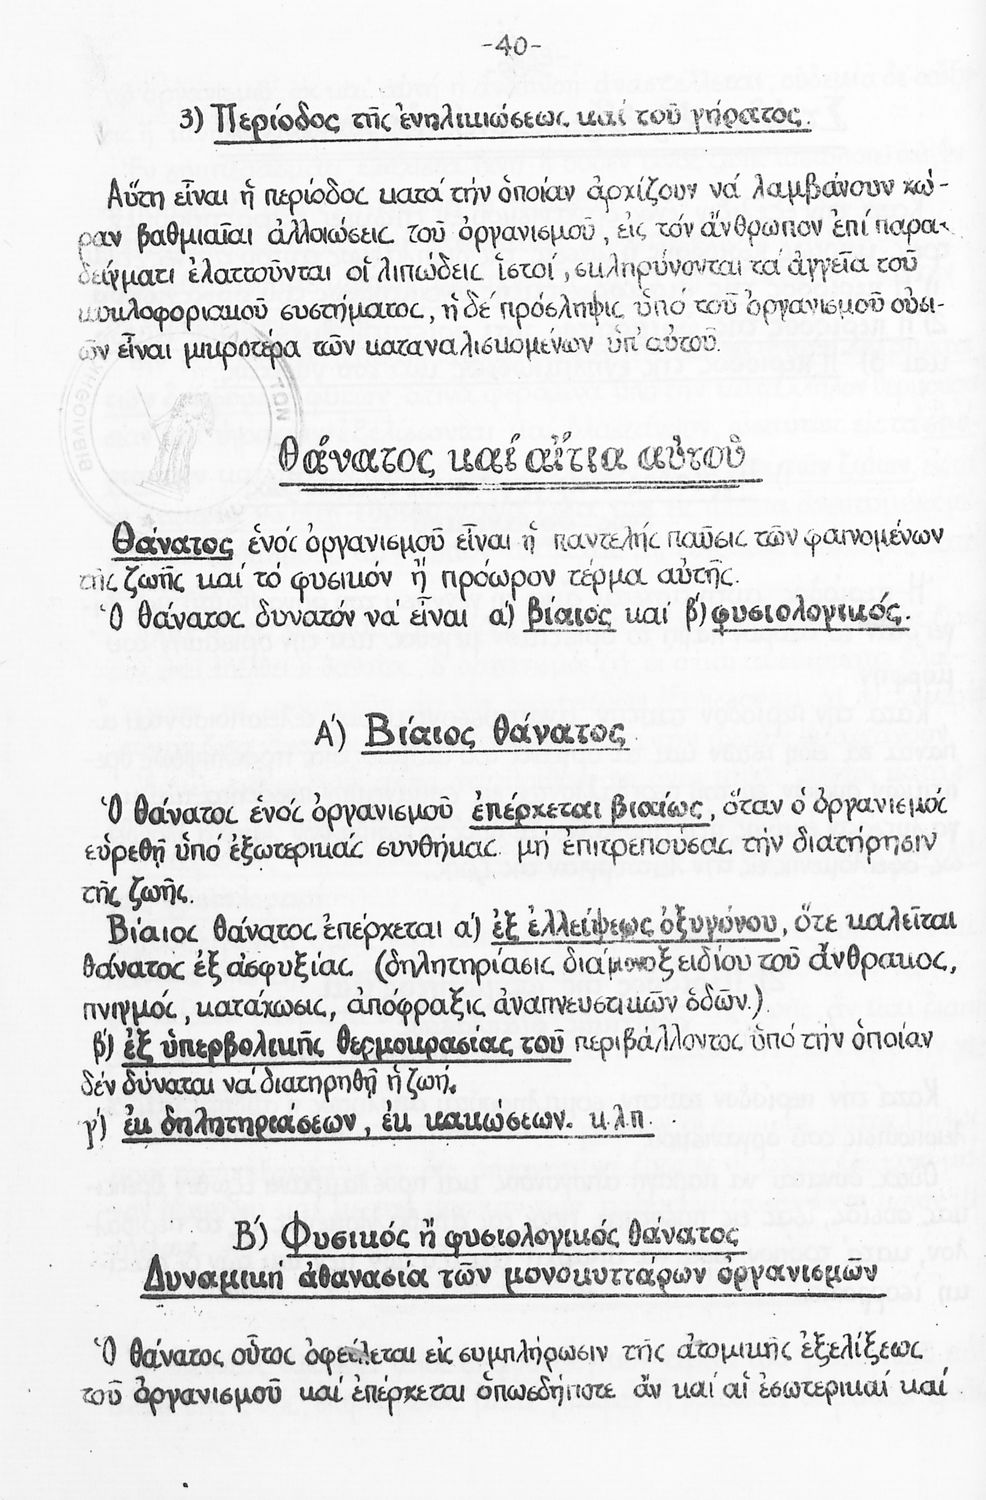 -40-
3) Περίοδος τῆς ἐνηλικιώσεως καί τοῦ γήρατος.
Αὕτη εἶναι ἡ περίοδος κατά τήν ὁποίαν ἀρχίζουν νά λαμβάνουν χώ-
ραν βαθμιαῖαι ἀλλοιώσεις τοῦ ὀργανισμοῦ, εἰς τόν ἄνθρωπον ἐπί παρα-
δείγματι ἐλαττοῦνται οἱ λιπώδεις ἱστοί, σκληρύνονται τά ἀγγεῖα τοῦ
κυκλοφορικοῦ συστήματος, ἡ δέ πρόσληψις ὑπό τοῦ ὀργανισμοῦ οὐσι-
ῶν εἶναι μικροτέρα τῶν καταναλισκομένων ὑπ' αὐτοῦ.
ΒΙΒΛΙΟΘΗΚΗ ΤΩΝ
Θάνατος καί αἴτια αὐτοῦ
Θάνατος ἑνός ὀργανισμοῦ εἶναι ἡ παντελής παῦσις τῶν φαινομένων
τῆς ζωῆς καί τό φυσικόν ἤ πρόωρον τέρμα αὐτῆς.
Ὁ θάνατος δυνατόν νά εἶναι α) βίαιος καί β) φυσιολογικός.
Α') Βίαιος θάνατος
Ὁ θάνατος ἑνός ὀργανισμοῦ ἐπέρχεται βιαίως, ὅταν ὁ ὀργανισμός
εὑρεθῇ ὑπό ἐξωτερικάς συνθήκας μή ἐπιτρεπούσας τήν διατήρησιν
τῆς ζωῆς.
Βίαιος θάνατος ἐπέρχεται α) ἐξ ἐλλείψεως ὀξυγόνου, ὅτε καλεῖται
θάνατος ἐξ ἀσφυξίας (δηλητηρίασις διά μονοξειδίου τοῦ ἄνθρακος,
πνιγμός, κατάχωσις, ἀπόφραξις ἀναπνευστικῶν ὁδῶν.)
β) ἐξ ὑπερβολικῆς θερμοκρασίας τοῦ περιβάλλοντος ὑπό τήν ὁποίαν
δέν δύναται νά διατηρηθῇ ἡ ζωή.
γ) ἐκ δηλητηριάσεων, ἐκ κακώσεων. κ.λ.π.
Β') Φυσικός ἤ φυσιολογικός θάνατος
Δυναμική ἀθανασία τῶν μονοκυττάρων ὀργανισμῶν
Ὁ θάνατος οὗτος ὀφείλεται εἰς συμπλήρωσιν τῆς ἀτομικῆς ἐξελίξεως
τοῦ ὀργανισμοῦ καί ἐπέρχεται ὁπωσδήποτε ἄν καί αἱ ἐσωτερικαί καί